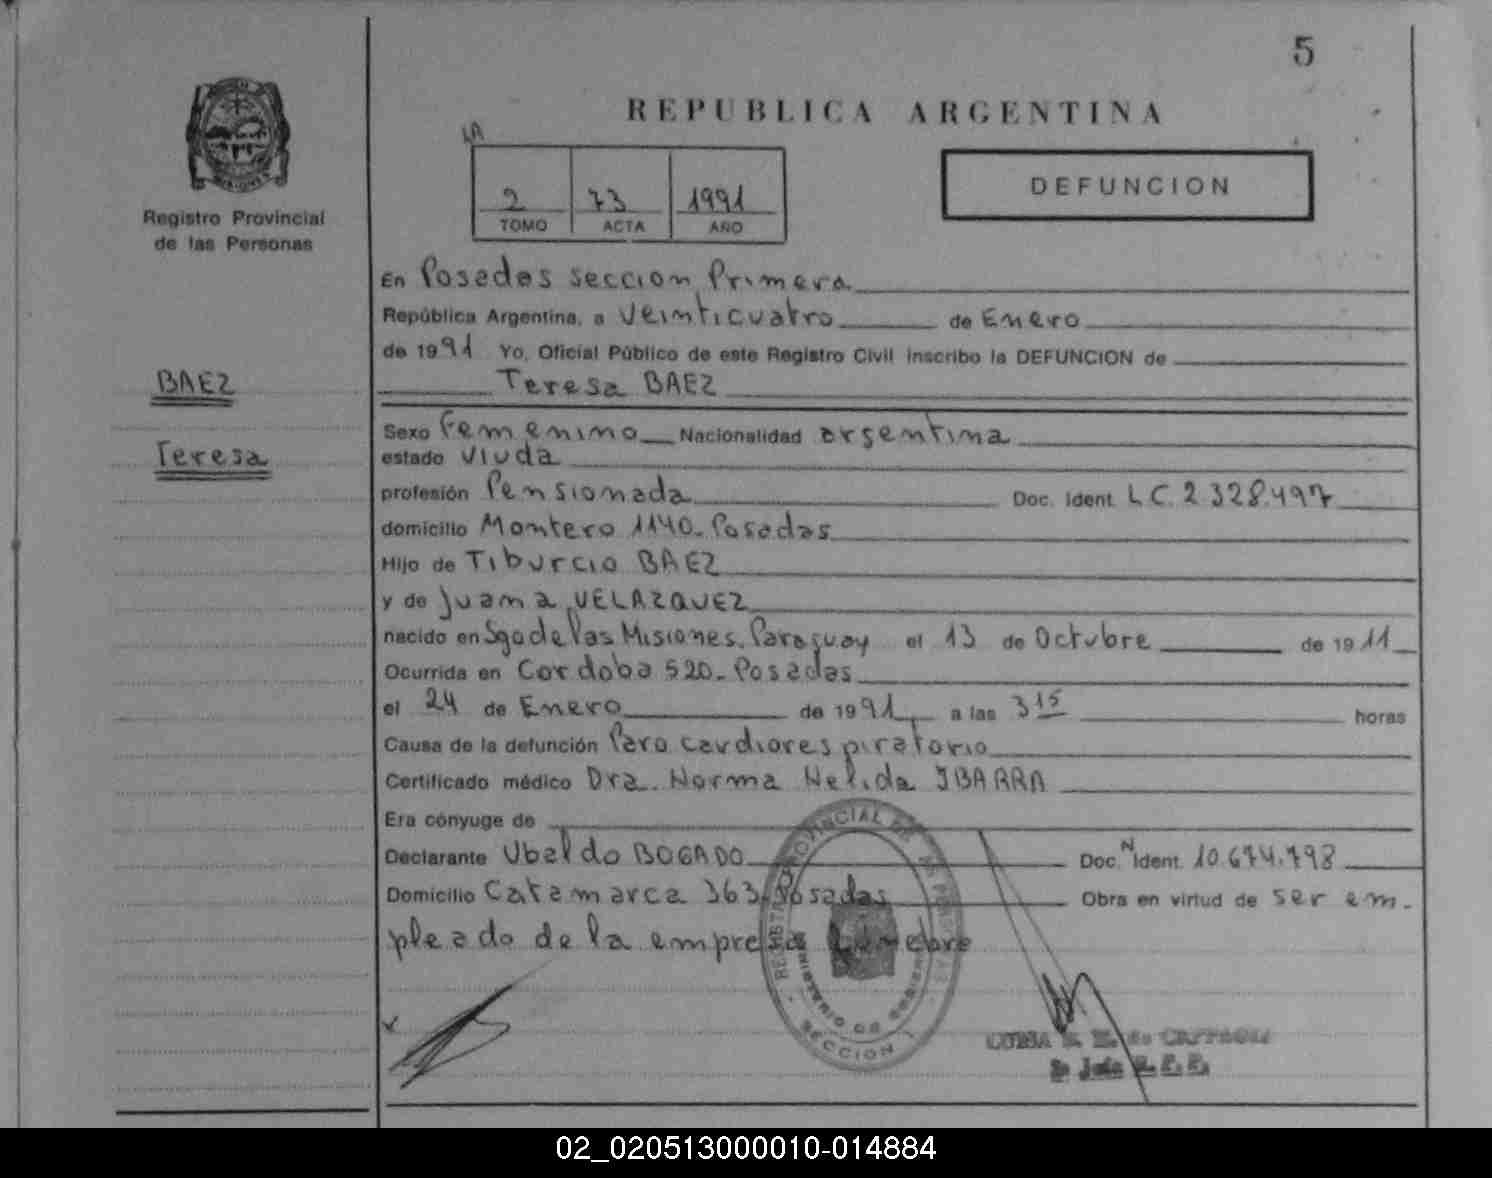 5
REPUBLICA ARGENTINA
Registro Provincial
de las Personas
1A
2 73 1991
TOMO ACTA AÑO
DEFUNCION
En Posadas seccion Primera
República Argentina, a veinticuatro de Enero
de 1991 Yo, Oficial Público de este Registro Civil inscribo la DEFUNCION de
Teresa BAEZ
BAEZ
Teresa
Sexo femenino Nacionalidad argentina
estado viuda
profesión Pensionada Doc. Ident. L.C. 2.328.497
domicilio Montero 1140-Posadas
Hijo de Tiburcio BAEZ
y de Juana VELAZQUEZ
nacido en Sgo de las Misiones. Paraguay el 13 de Octubre de 1911
Ocurrida en Cordoba 520-Posadas
el 24 de Enero de 1991 a las 3 15 horas
Causa de la defunción Paro cardiorespiratorio
Certificado médico Dra. Norma Nelida IBARRA
Era cónyuge de
Declarante Ubaldo BOGADO Doc. N Ident. 10.674.798
Domicilio Catamarca 363-Posadas Obra en virtud de ser em-
pleado de la empresa funebre
REGISTRO PROVINCIAL DE LAS PERSONAS
MINISTERIO DE GOBIERNO
SECCION 1
de
02_020513000010-014884